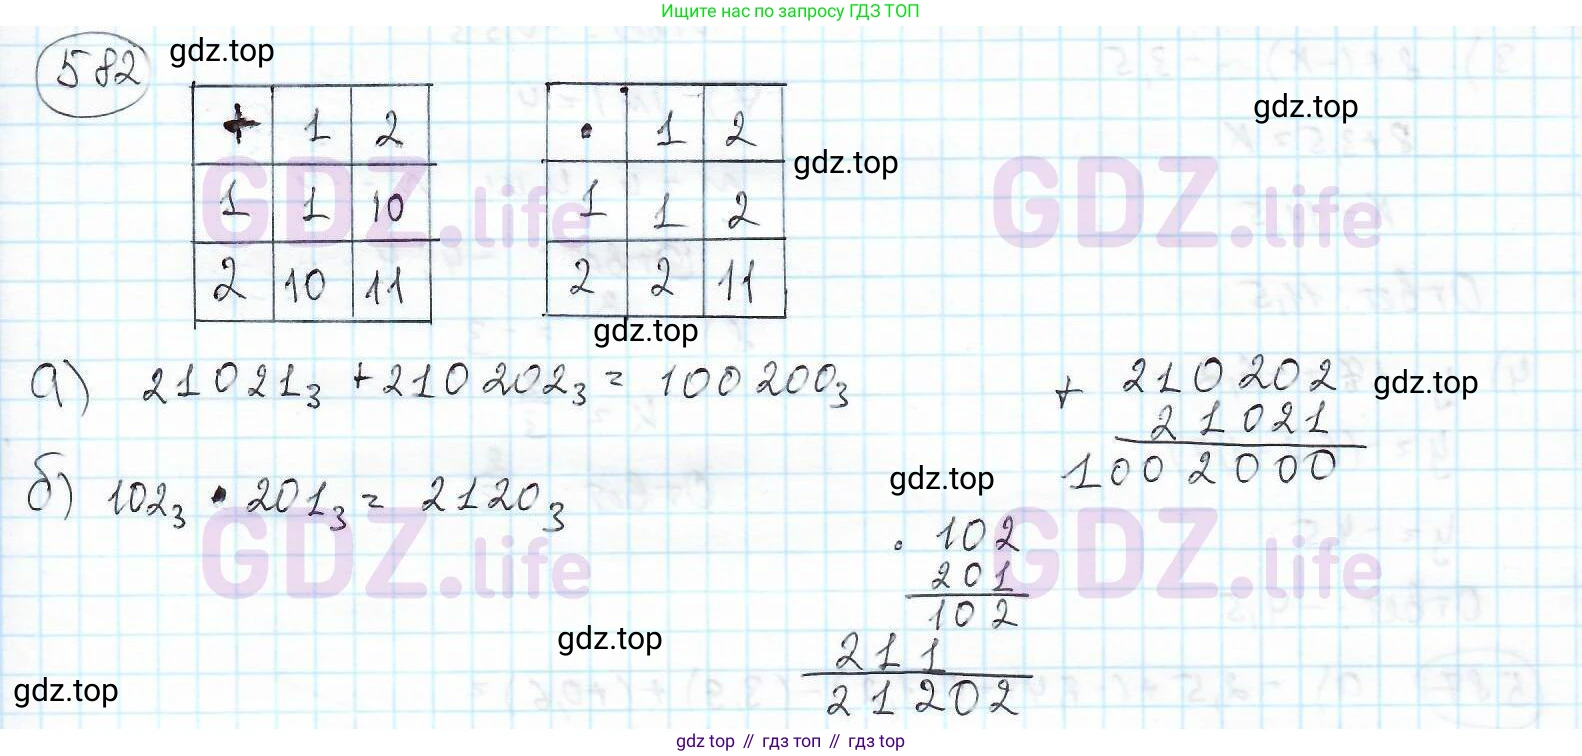 Ищите нас по запросу ГДЗ ТОП
582 gdz.top
+ 1 2
1 1 10
2 10 11
· 1 2
1 1 2
2 2 11
gdz.top
gdz.top
gdz.top
GDZ.life
GDZ.life
а) 21021₃ + 210202₃ = 100200₃
+ 210202
21021
1002000
gdz.top
б) 102₃ · 201₃ = 2120₃
gdz.top
· 102
201
102
211
21202
GDZ.life
GDZ.life
gdz.top
gdz.top
gdz.top // гдз топ // gdz top